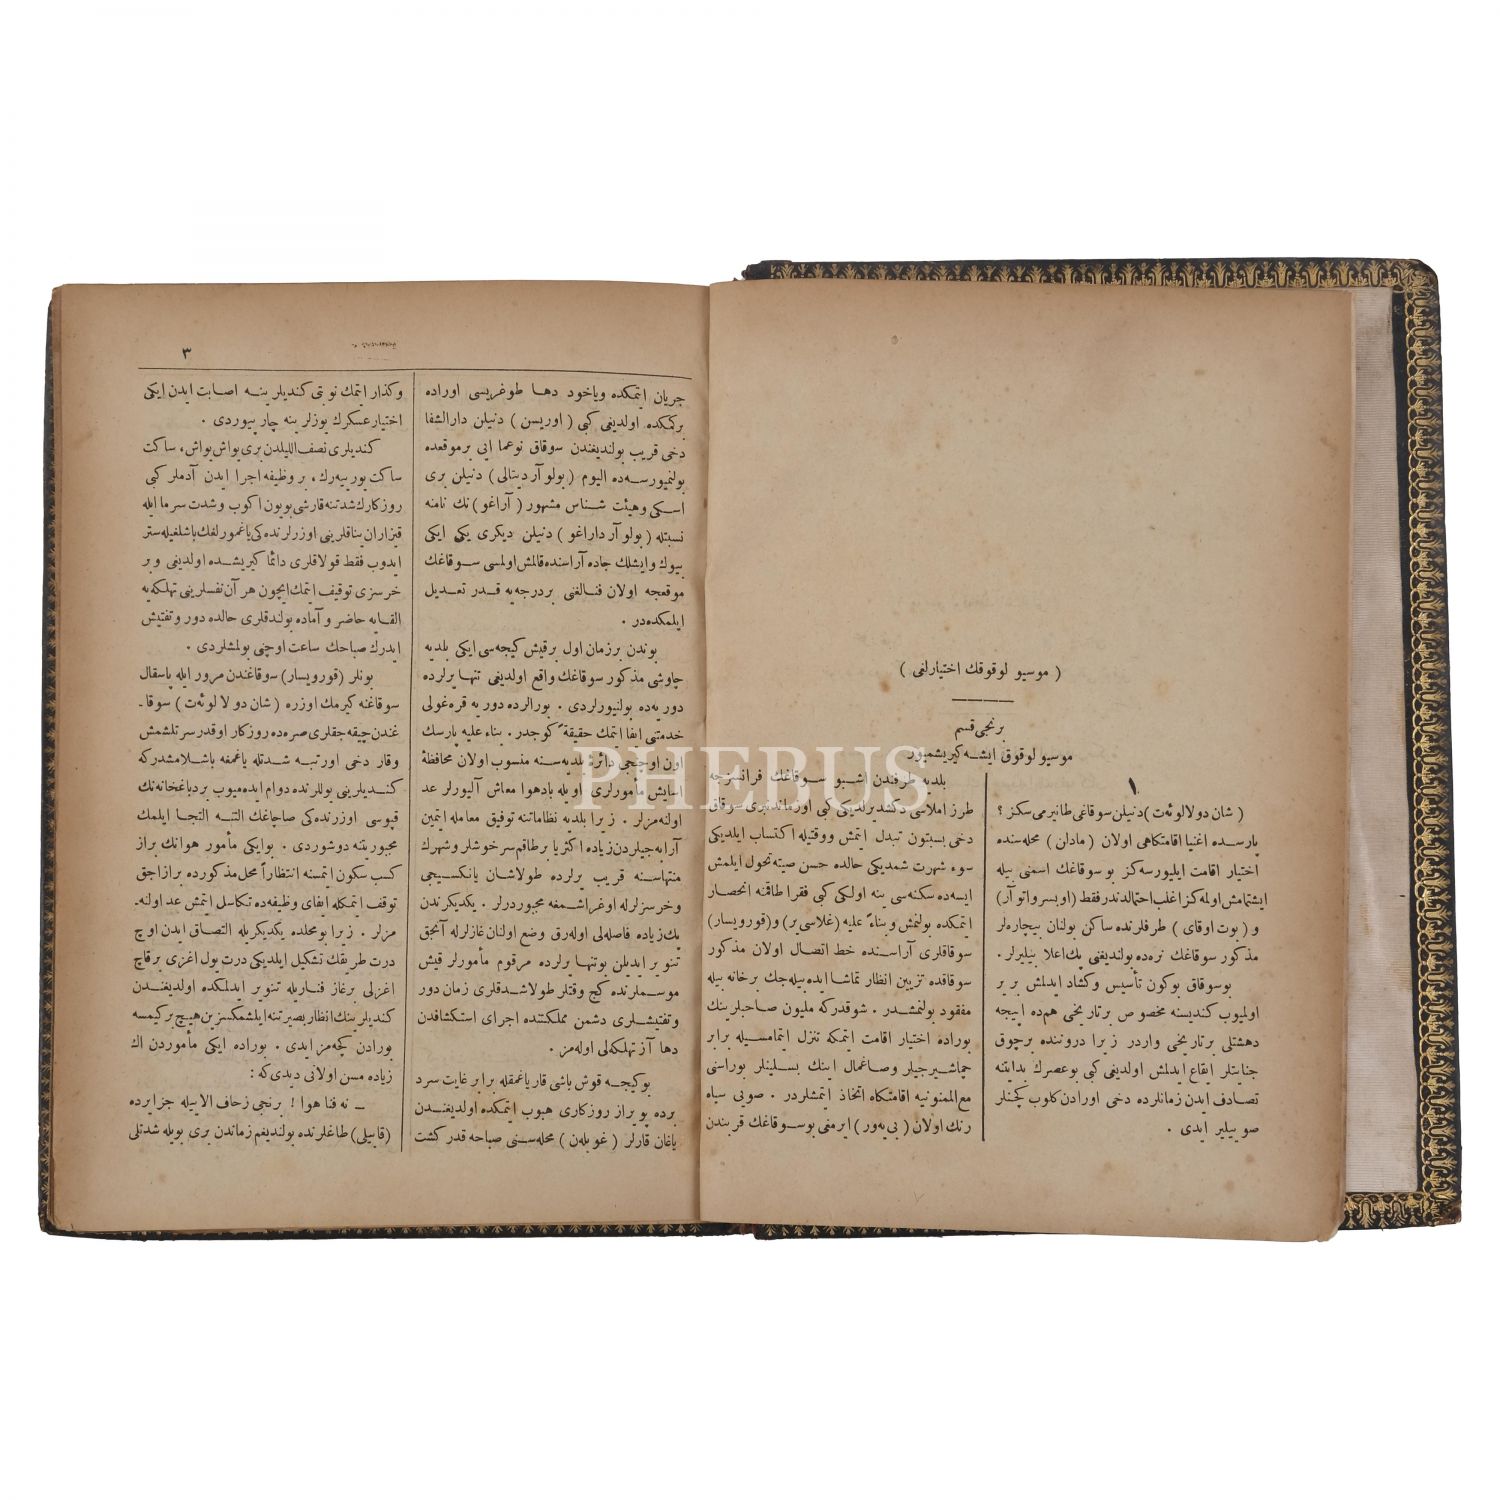 ( موسیو لوقوقك اختیارلغی )
برنجی قسم
موسیو لوقوق ایشـه کیریشمیور
۱
( شان دولالوئه‌ت ) دنیلن سوقاغی طانیرمی سکز ؟
پارسـده اغنیا اقامتکاهی اولان ( مادلن ) محله سنده
اختیار اقامت ایلیورسه کز بو سوقاغك اسمنی بیله
ایشتمامش اولمه کز اغلب احتمالدندر فقط ( اوبسرواتوآر )
و ( بوت اوقای ) طرفلرنده ساکن بولنان بیچاره‌لر
مذکور سوقاغك نره‌ده بولندیغنی پك اعلا بیلیرلر .
بوسوقاق بوکون تأسیس وکشاد ایدلمش بریر
اولمیوب کندیسنه مخصوص برتاریخی هم‌ده اپیجه
دهشتلی برتاریخی واردر زیرا دروننده برچوق
جنایتلر ایقاع ایدلمش اولدیغی کبی بوعصرك بدایتنه
تصادف ایدن زمانلرده دخی اورادن کلوب کچنلر
صوییلیر ایدی .
بلدیه طرفندن اشبو سـوقاغك فرانسزجه
طرز املاسی دکشدیرلدیکی کبی اوزماندنبری سوقاق
دخی بسبتون تبدل ایتمش ووقتیله اکتساب ایلدیکی
سوء شهرت شمدیکی حالده حسن صیته تحول ایلمش
ایسه‌ده سکنه‌سی ینه اولکی کبی فقرا طاقنه انحصار
ایتمکده بولنمش وبناءً علیه ( غلاسی‌یر ) و ( قورویسار )
سوقاقلری آراسنده خط اتصال اولان مذکور
سوقاقده تزیین انظار تماشا ایده‌بیله‌جك برخانه بیله
مفقود بولنمشدر . شوقدرکه ملیون صاحبلرینك
بوراده اختیار اقامت ایتمکه تنزل ایتمامسیله برابر
چماشیرجیلر وصاغمال اینك بسلینلر بوراسنی
مع الممنونیه اقامتکاه اتخاذ ایتمشلردر . صویی سیاه
رنك اولان ( بی‌یه‌ور ) ایرمغی بوسـوقاغك قربندن
۳
جریان ایتمکده ویاخود دها طوغریسی اوراده
برکمکده اولدیغی کبی ( اوریسن ) دنیلن دارالشفا
دخی قریب بولندیغندن سوقاق نوعما ایی برموقعده
بولنمیورسه‌ده الیوم ( بولوآر دیتالی ) دنیلن بری
اسکی وهیئت شناس مشهور ( آراغو ) نك نامنه
نسبتله ( بولوآر داراغو ) دنیلن دیکری یکی ایکی
بیوك وایشلك جاده آراسنده قالمش اولمسی سـوقاغك
موقعجه اولان فنالغنی بردرجه‌یه قـدر تعدیل
ایلمکده‌در .
بوندن برزمان اول برقیش کیجه‌سی ایکی بلدیه
چاوشی مذکور سوقاغك واقع اولدیغی تنها یرلرده
دوریه‌ده بولنیورلردی . بورالرده دوریه قره‌غولی
خدمتنی ایفا ایتمك حقیقةً کوجدر . بناء علیه پارسك
اون اوچنجی دائرۀ بلدیه‌سنه منسوب اولان محافظۀ
آسایش مأمورلری اویله بادهوا معاش آلیورلر عد
اولنه‌مزلر . زیرا بلدیه نظاماتنه توفیق معامله ایتمین
آرابه‌جیلردن زیاده اکثریا برطاقم سرخوشلر وشهرك
منتهاسنه قریب یرلرده طولاشان یانکسیجی
وخرسزلرله اوغراشمغه مجبوردرلر . یکدیکرندن
پك زیاده فاصله‌لی اوله‌رق وضع اولنان غازلرله آنجق
تنویر ایدیلن بوتنها یرلرده مرقوم مأمورلر قیش
موسملرنده کیج وقتلر طولاشدقلری زمان دور
وتفتیشلری دشمن مملکتنده اجرای استکشافدن
دها آز تهلکه‌لی اوله‌مز .
بوکیجـه قوش باشی قار یاغمقله برابر غایت سرد
برده پویراز روزکاری هبوب ایتمکده اولدیغندن
یاغان قارلر ( غوبله‌ن ) محله‌سنی صباحه قدر کشت
وکذار ایتمك نوبتی کندیلرینـه اصابت ایدن ایکی
اختیار عسکرك یوزلرینه چارپیوردی .
کندیلری نصف اللیلدن بری یواش یواش، ساکت
ساکت یورییه‌رك، بروظیفه اجرا ایدن آدملر کبی
روزکارك شدتنه قارشی بویون اکوب وشدت سرما ایله
قیزاران یناقلرینی اوزرلرنده‌کی یاغمورلغك باشلغیله ستر
ایدوب فقط قولاقلری دائما کیریشده اولدیغی و بر
خرسزی توقیف ایتمك ایچون هر آن نفسلرینی تهلکه‌یه
القایه حاضر وآماده بولندقلری حالده دور وتفتیش
ایدرك صباحك ساعت اوچنی بولمشلردی .
بونلر ( قورویسار ) سوقاغندن مرور ایله پاسقال
سوقاغنه کیرمك اوزره ( شان دو لا لوئه‌ت ) سوقا-
غندن چیقه‌جقلری صره‌ده روزکار اوقدر سرتلشمش
وقار دخی اورتبـه شدتله یاغمغه باشلامشدرکه
کندیلرینی یوللرنده دوام ایده‌میوب بردباغخانه‌نك
قپوسی اوزرنده‌کی صاچاغك التـه التجا ایلمك
مجبوریتنه دوشوردی . بوایکی مأمور هوانك براز
کسب سکون ایتمسنه انتظاراً محل مذکورده برازجق
توقف ایتمکله ایفای وظیفه‌ده تکاسل ایتمش عد اولنه-
مزلر . زیرا بومحلده یکدیکریله التصاق ایدن اوچ
درت طریقك تشکیل ایلدیکی درت یول اغزی برقاچ
اغزلی برغاز فناریله تنویر ایدلمکده اولدیغندن
کندیلرینك انظار بصیرتنه ایلشمکسزین هیچ برکیمسه
بورادن کچه‌مز ایدی . بوراده ایکی مأموردن اك
زیاده مسن اولانی دیدی که :
ــ نه فنا هوا ! برنجی زحاف الاییله جزایرده
( قابیلی ) طاغلرنده بولندیغم زماندن بری بویله شدتلی
PHEBUS